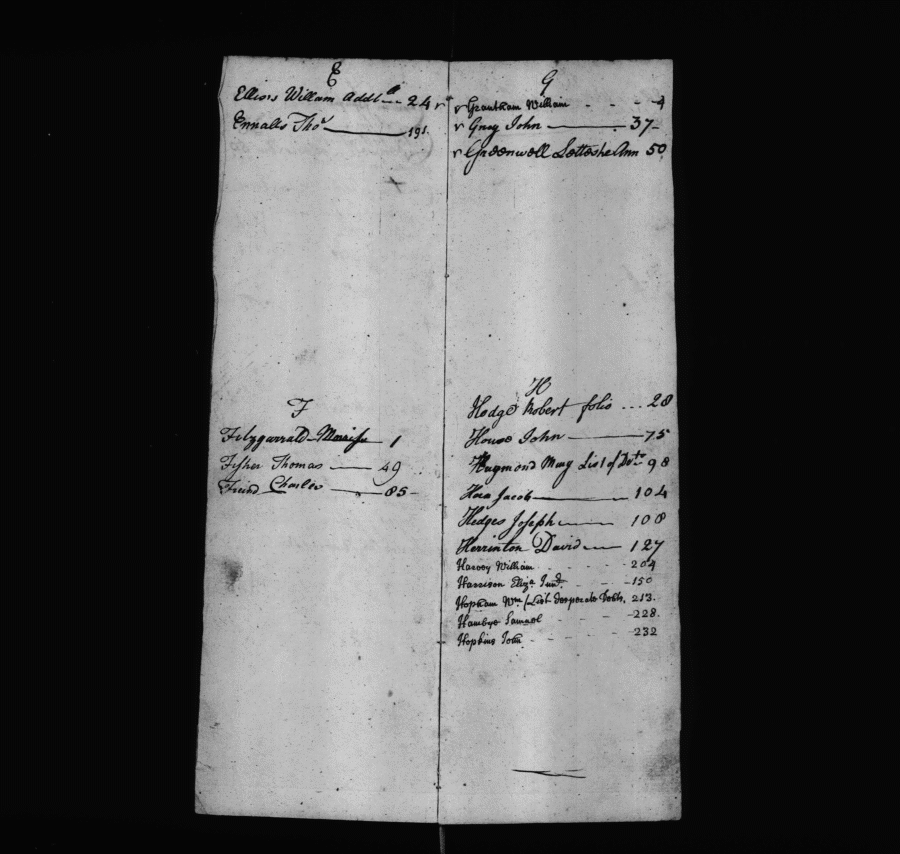 E
Ellions William Addl 24
Ennalls Thos 191
F
Fitzgarrald Morriss 1
Fisher Thomas 49
Freind Charles 85
G
Grantham William 4
Gray John 37
Greenwell Lettashe Ann 50
H
Hodge Robert folio 28
House John 75
Haymond Mary List of Dbts 98
Jacob 104
Hedges Joseph 108
Herrinton David 127
Harvey William 204
Harrison Eliza Junr. 150
Wm (List Desperate Debts. 213.
Hambye Samuel 228.
Hopkins John 232